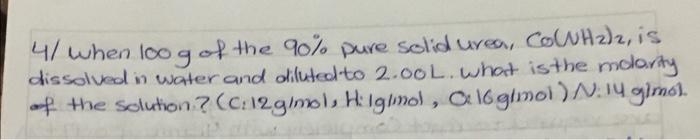 4/ when 100 g of the 90% pure solid urea, CO(NH2)2, is
dissolved in water and diluted to 2.00L. what is the molarity
of the solution? (C:12g/mol, H:1g/mol, O:16g/mol) N:14 g/mol.